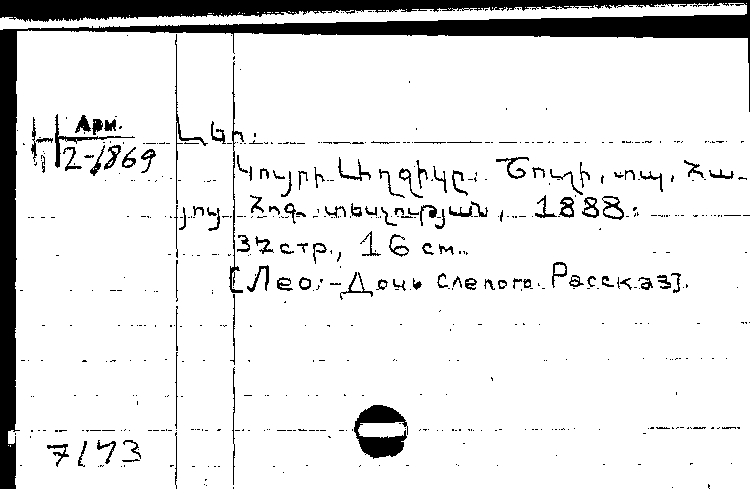 Арм.
2-/869
Լեո.
Կոյրի Աղջիկը. Շուշի, տպ. Հա-
յոց Հոգ. տեսչության, 1888.
32 стр., 16 см.
[Лео.-Дочь слепого. Рассказ].
7/73